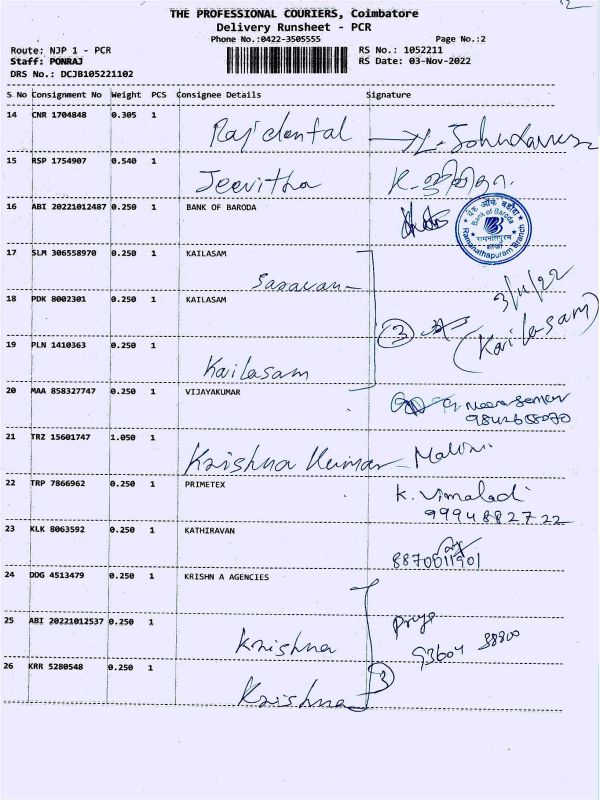 THE PROFESSIONAL COURIERS, Coimbatore
Delivery Runsheet - PCR
Phone No.:0422-3505555
Page No.:2
Route: NJP 1 - PCR
RS No.: 1052211
Staff: PONRAJ
RS Date: 03-Nov-2022
DRS No.: DCJB105221102
S No Consignment No Weight PCS Consignee Details Signature
14 CNR 1704848 0.305 1
Raj dental
15 RSP 1754907 0.540 1
Jeevitha K.
16 ABI 20221012487 0.250 1 BANK OF BARODA
बैंक ऑफ़ बड़ौदा
Bank of Baroda
Ramanathapuram Branch
17 SLM 306558970 0.250 1 KAILASAM
Saravan
3/11/22
18 PDK 8002301 0.250 1 KAILASAM
3
(Kailasam)
19 PLN 1410363 0.250 1
Kailasam
20 MAA 858327747 0.250 1 VIJAYAKUMAR
21 TRZ 15601747 1.050 1
Krishna Kumar
22 TRP 7866962 0.250 1 PRIMETEX
K. Vimaladi
9994882722
23 KLK 8063592 0.250 1 KATHIRAVAN
8870011901
24 DDG 4513479 0.250 1 KRISHN A AGENCIES
25 ABI 20221012537 0.250 1
Krishna
Priya
93604 38800
26 KRR 5280548 0.250 1
Krishna
3